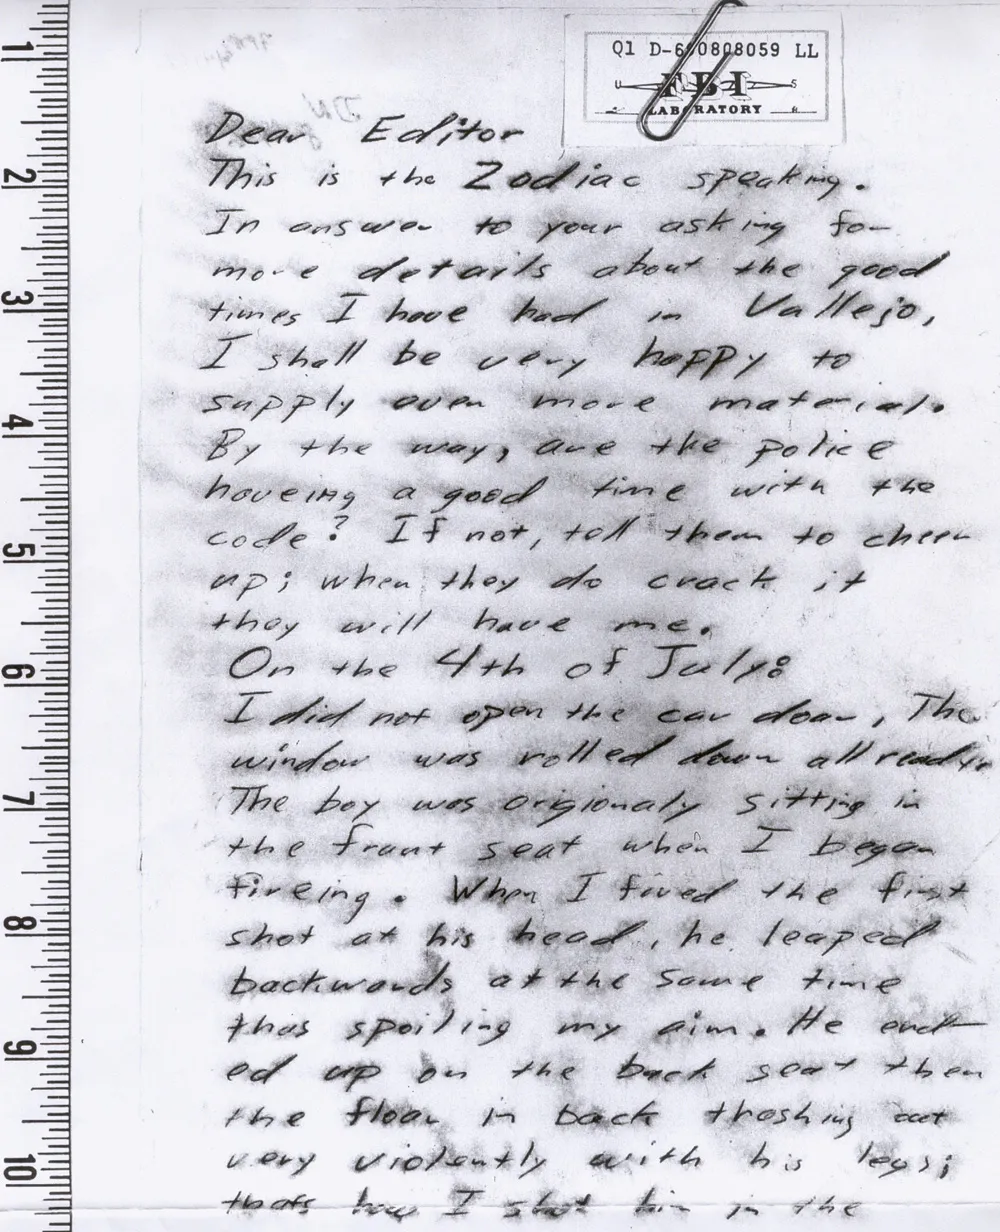 Q1 D-690808059 LL
U FBI S
LABORATORY
Dear Editor
This is the Zodiac speaking.
In answer to your asking for
more details about the good
times I have had in Vallejo,
I shall be very happy to
supply even more material.
By the way, are the police
haveing a good time with the
code? If not, tell them to cheer
up; when they do crack it
they will have me.
On the 4th of July:
I did not open the car door, The
window was rolled down all ready.
The boy was origionaly sitting in
the frunt seat when I began
fireing. When I fired the first
shot at his head, he leaped
backwards at the same time
thus spoiling my aim. He end-
ed up on the back seat then
the floor in back thashing out
very violently with his legs;
thats how I shot him in the
1
2
3
4
5
6
7
8
9
10